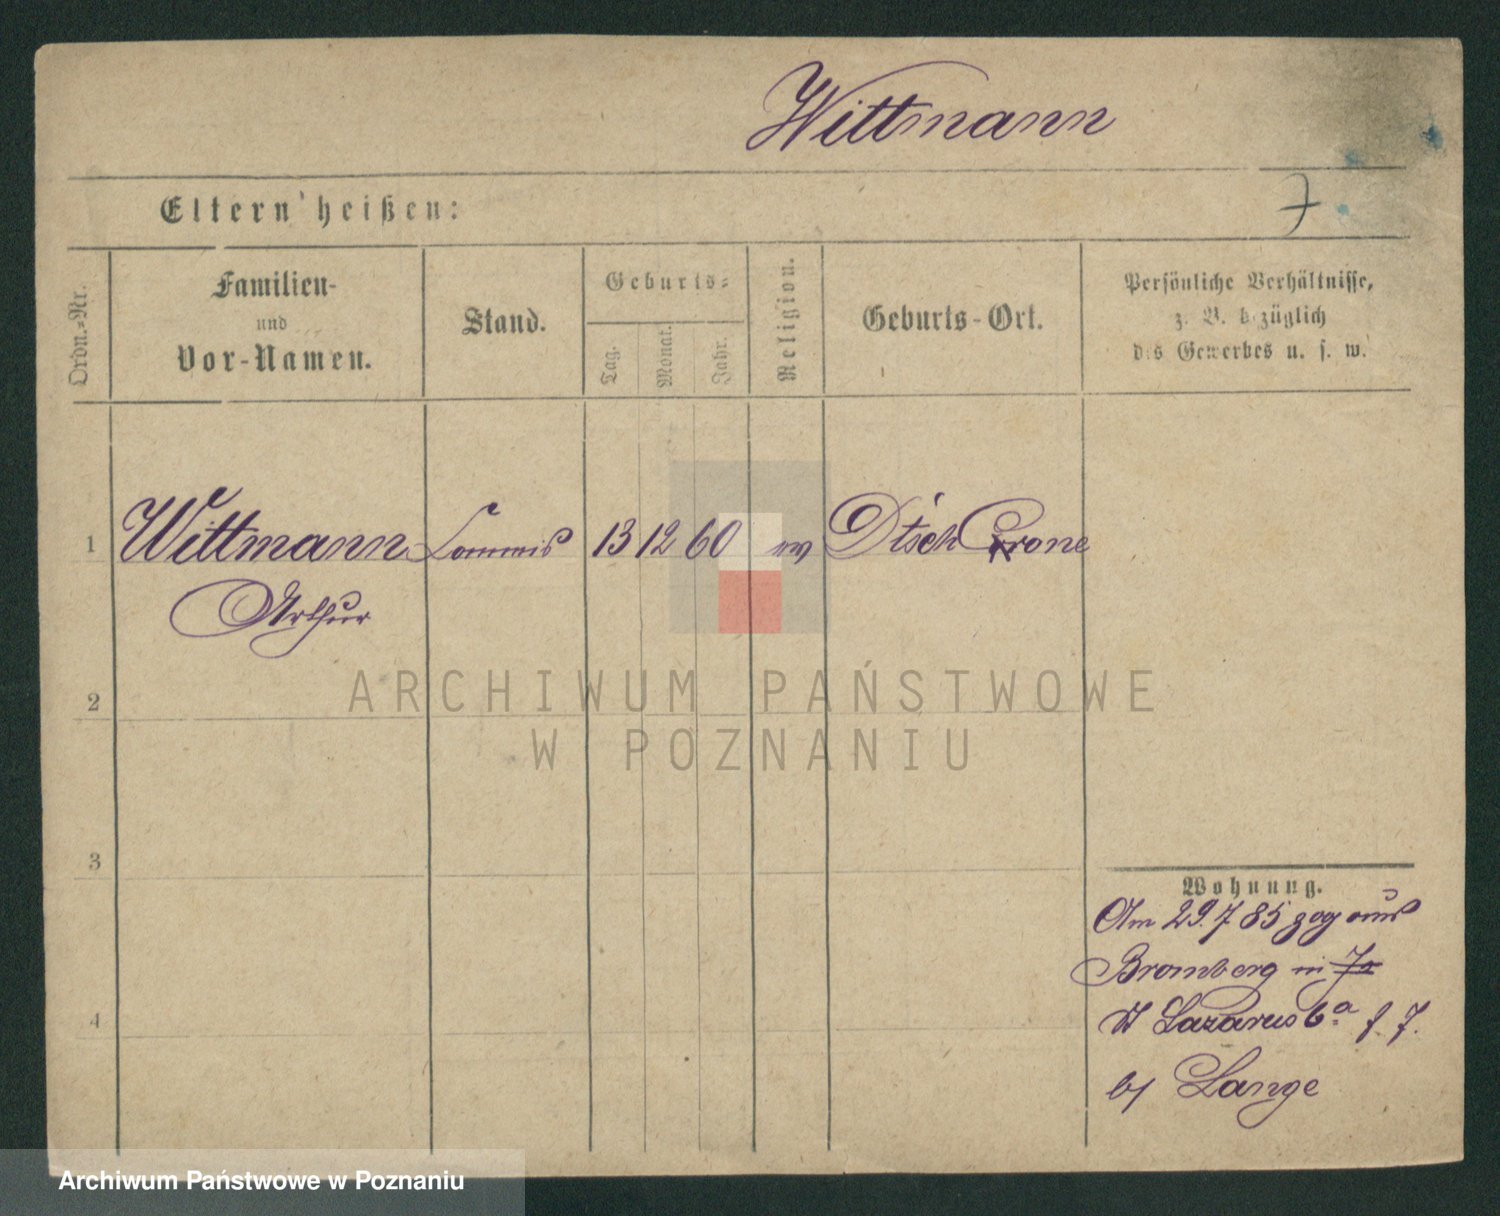 Wittmann
7
Eltern heißen:
Ordn.-Nr.
Familien-
und
Vor-Namen.
Stand.
Geburts-
Tag.
Monat.
Jahr.
Religion.
Geburts-Ort.
Persönliche Verhältnisse,
z. B. bezüglich
des Gewerbes u. s. w.
1 Wittmann Commis 13 12 60 Dtsch Crone
Arthur
2
3
4
Wohnung.
Am 29.7.85 zog aus
Bromberg in
St Lazarus 6a f. 7.
b/ Lange
ARCHIWUM PAŃSTWOWE
W POZNANIU
Archiwum Państwowe w Poznaniu